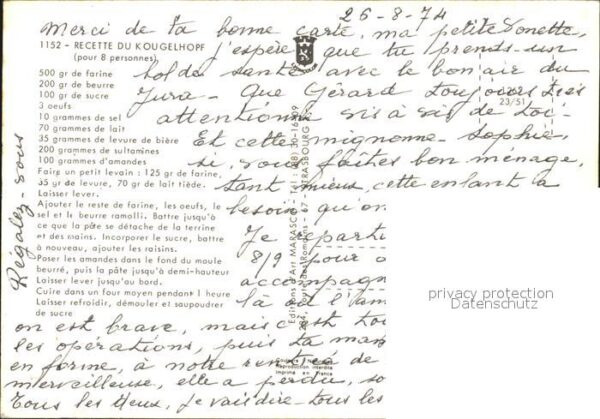 26-8-74
Merci de ta bonne carte, ma petite Donette,
1152 - RECETTE DU KOUGELHOPF
(pour 8 personnes)
j'espère que tu prends un
500 gr de farine
200 gr de beurre
100 gr de sucre
3 oeufs
10 grammes de sel
70 grammes de lait
35 grammes de levure de bière
200 grammes de sultamines
100 grammes d'amandes
Faire un petit levain : 125 gr de farine,
35 gr de levure, 70 gr de lait tiède.
Laisser lever.
Ajouter le reste de farine, les oeufs, le
sel et le beurre ramolli. Battre jusqu'à
ce que la pâte se détache de la terrine
et des mains. Incorporer le sucre, battre
à nouveau, ajouter les raisins.
Poser les amandes dans le fond du moule
beurré, puis la pâte jusqu'à demi-hauteur
Laisser lever jusqu'au bord.
Cuire dans un four moyen pendant 1 heure
Laisser refroidir, démouler et saupoudrer
de sucre
bol de santé avec le bon air du
Jura - Que Gérard toujours très
23/51
attentionné vis à vis de toi -
Et cette mignonne Sophie,
si vous faites bon ménage,
tant mieux, cette enfant a
besoin qu'on
Je reparti
8/9 pour
accompagn
là où l'am
on est brave, mais c'est tou
les opérations, puis ta mam
en forme, à notre rentrée de
merveilleuse, elle a perdu, so
Tous les deux, je vais dire - tous les
Régalez-vous
Editions d'Art MARASCO - Tél : (88) 30-16-99
Route des Romains - 67 - STRASBOURG
Reproduction interdite
Imprimé en France
privacy protection
Datenschutz